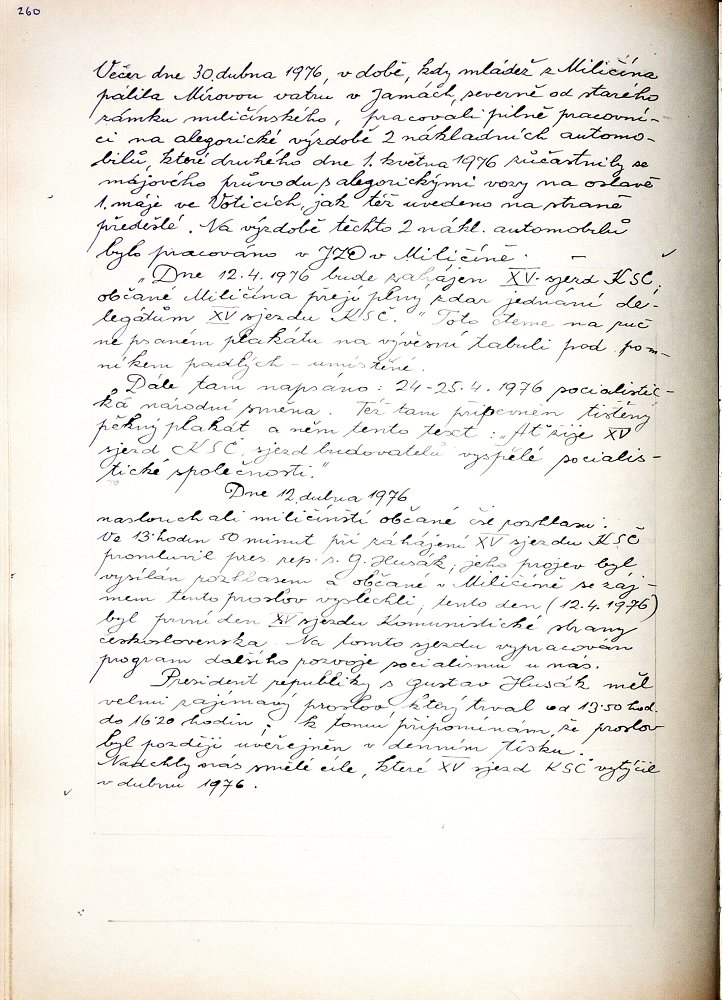 260
Večer dne 30. dubna 1976, v době, kdy mládež z Miličína
pálila Mírovou vatru v Jamách, severně od starého
zámku miličínského, pracovali pilně pracovní-
ci na alegorické výzdobě 2 nákladních automo-
bilů, které druhého dne 1. května 1976 zúčastnily se
májového průvodu s alegorickými vozy na oslavě
1. máje ve Voticích, jak též uvedeno na straně
předešlé. Na výzdobě těchto 2 nákl. automobilů
bylo pracováno v JZD v Miličíně. –
„Dne 12.4.1976 bude zahájen XV. sjezd KSČ,
občané Miličína přejí plny zdar jednání de-
legátům XV sjezdu KSČ." Toto čteme na ruč
ně psaném plakátu na vývěsní tabuli pod pom-
níkem padlých – umístěné.
Dále tam napsano: 24-25.4.1976 socialistic-
ká národní směna. Též tam připevněn tištěný
pěkný plakát a něm tento text: „Ať žije XV
sjezd KSČ, sjezd budovatelů vyspělé socialis-
tické společnosti."
Dne 12. dubna 1976
naslouchali miličínští občané čs. rozhlasu:
Ve 13 hodin 50 minut při záhájení XV sjezdu KSČ
promluvil pres. rep. s. G. Husák, jeho projev byl
vysílán rozhlasem a občané v Miličíně se záj-
mem tento proslov vyslechli, tento den (12.4.1976)
byl první den XV sjezdu Komunistické strany
československa. Na tomto sjezdu vypracován
program dalšího rozvoje socialismu u nás.
President republiky s Gustav Husák měl
velmi zajímavý proslov který trval od 13·50 hod.
do 16·20 hodin. K tomu připomínám, že proslov
byl později uveřejněn v denním tisku.
Nadchly nás smělé cíle, které XV sjezd KSČ vytýčil
v dubnu 1976.